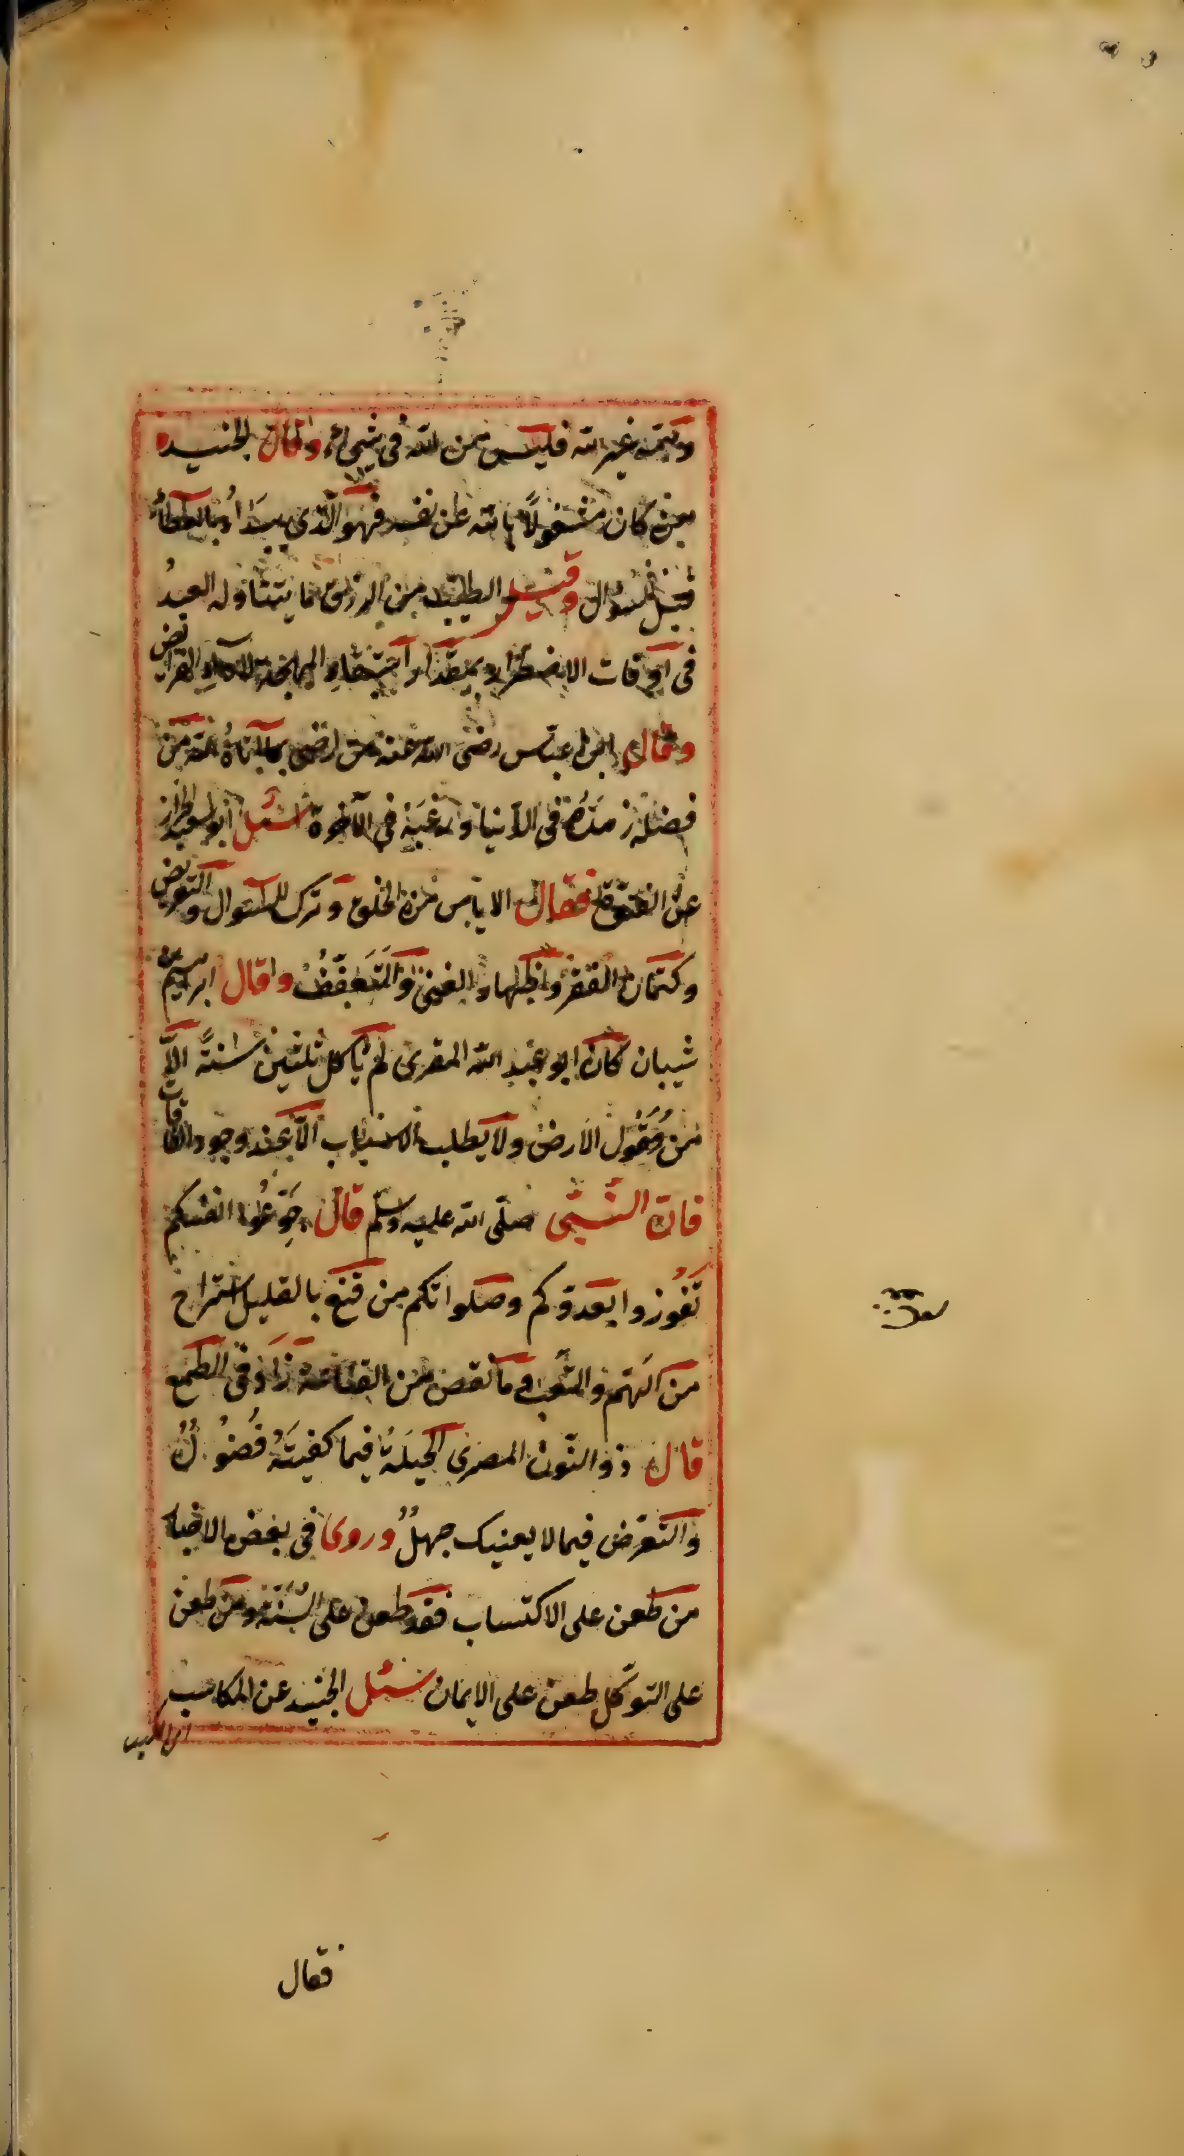 وهمّه غير الله فليس من الله في شيء وقال الجنيد
من كان مشغولًا بالله عن نفسه فهو الّذي يبدأ بالعطاء
قبل السؤال وقيل الطيّب من الرزق ما يتناوله العبد
في اوقات الاضطرار بمقدار استبقاء المهجة لاداء الفرايض
وقال ابن عبّاس رضى الله عنه من رضى بما آتاه الله من
فضله زهد في الدنيا ورغبة في الآخرة سئل ابو سعيد الخراز
عن الفتوّة فقال الاياس من الخلق وترك السّؤال والتعريض
وكتمان الفقر واظهار الغنى والتعفّف وقال ابرهيم بن
شيبان كان ابو عبد الله المقرى لم يأكل ثلثين سنة الاّ
من بقول الارض ولا يطلب الاسباب الاّ عند وجود الفاقات
فانّ النّبيّ صلّى الله عليه وسلّم قال جوّعوا انفسكم
تفوزوا بعدوّكم وصلواتكم من قنع بالقليل استراح
من الهمّ والتعب وما نقص من القناعة زاد في الطمع
قال ذو النّون المصرى الحيلة فيما كفيته فضولٌ
والتعرّض فيما لا يعنيك جهلٌ وروى في بعض الاخبار
من طعن على الاكتساب فقد طعن على السّنّة ومن طعن
على التوكّل طعن على الايمان سئل الجنيد عن المكاسب
فقال